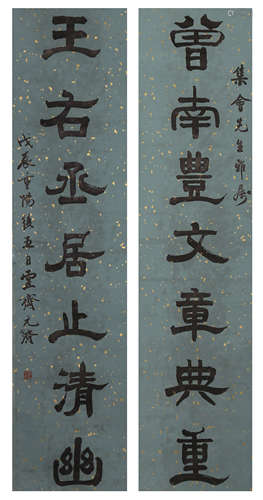 集會先生雅屬
曾南豐文章典重
王右丞居止清幽
戊辰重陽後五日雲齋元濟